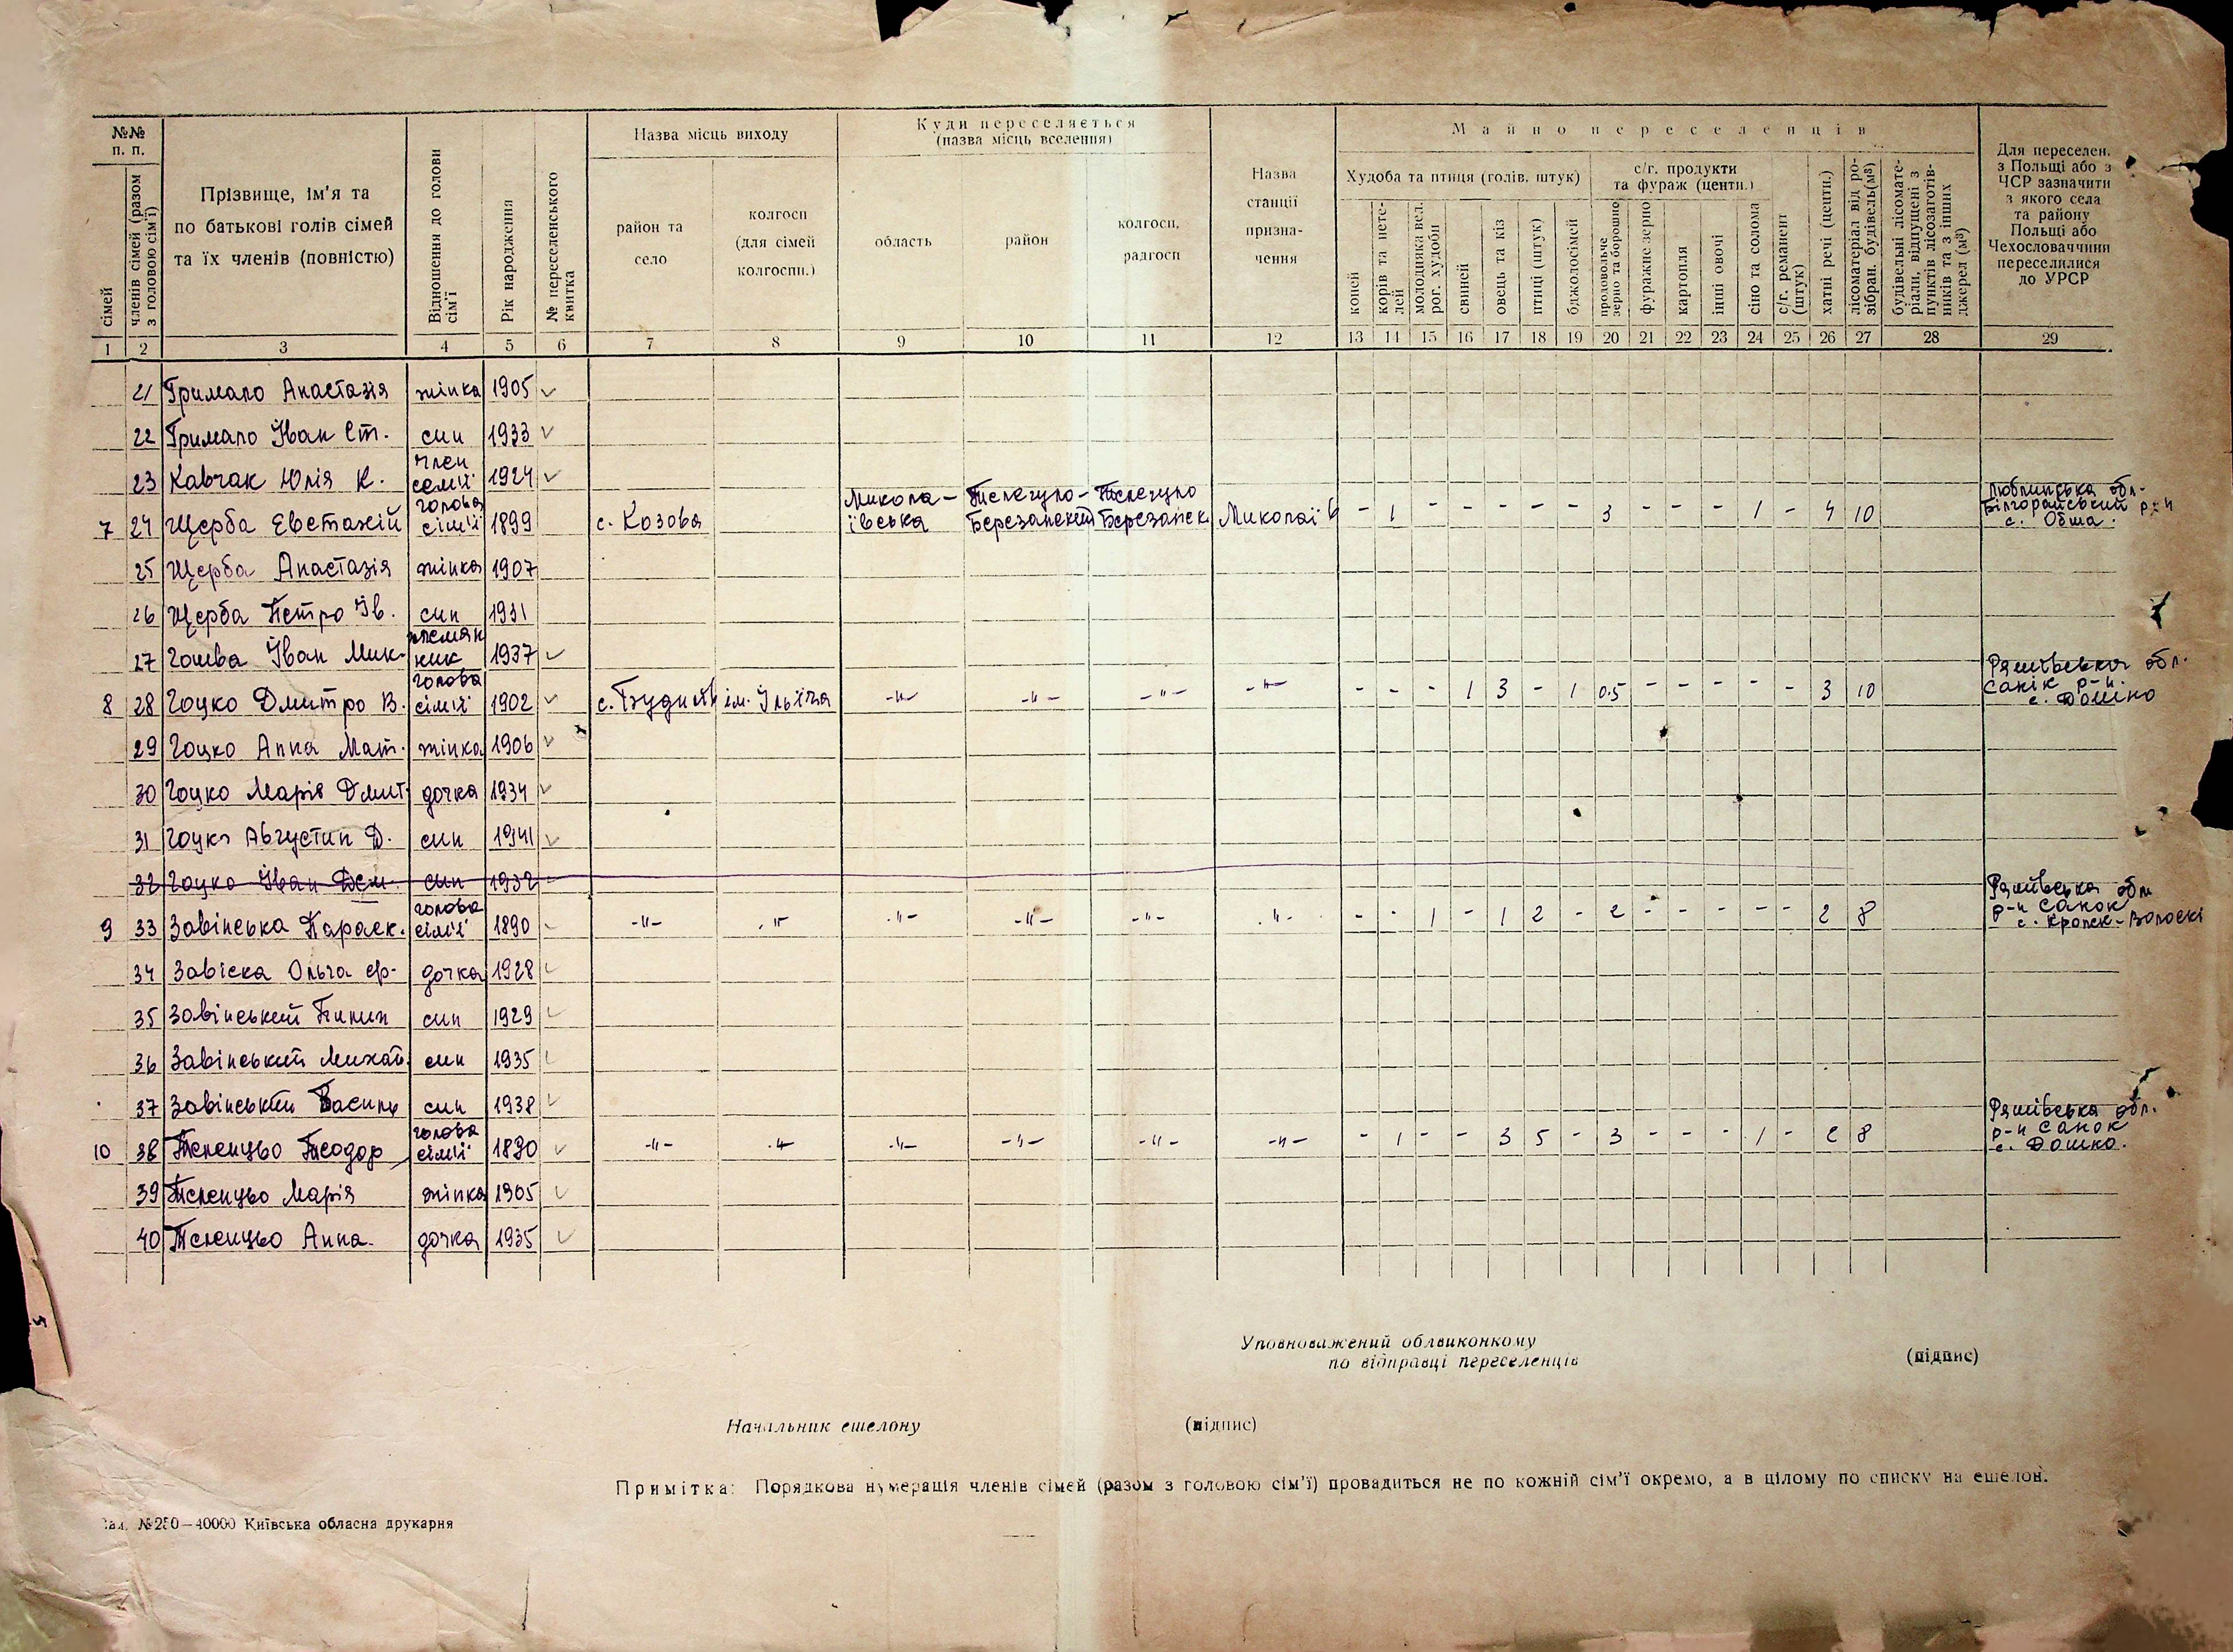 №№ п. п.
сімей
членів сімей (разом з головою сім'ї)
Прізвище, ім'я та
по батькові голів сімей
та їх членів (повністю)
Відношення до голови сім'ї
Рік народження
№ переселенського квитка
Назва місць виходу
район та село
колгосп (для сімей колгоспн.)
Куди переселяється
(назва місць вселення)
область
район
колгосп, радгосп
Назва станції призна-чення
Майно переселенців
Худоба та птиця (голів, штук)
коней
корів та нете-лей
молодняка вел. рог. худоби
свиней
овець та кіз
птиці (штук)
бджолосімей
с/г. продукти та фураж (центн.)
продовольче зерно та борошно
фуражне зерно
картопля
інші овочі
сіно та солома
с/г. реманент (штук)
хатні речі (центн.)
лісоматеріал від ро-зібран. будівель (м³)
будівельні лісомате-ріали, відпущені з пунктів лісозаготів-ників та з інших джерел (м³)
Для переселен. з Польщі або з ЧСР зазначити з якого села та району Польщі або Чехословаччини переселилися до УРСР
1 2 3 4 5 6 7 8 9 10 11 12 13 14 15 16 17 18 19 20 21 22 23 24 25 26 27 28 29
21 Гримало Анастазія жінка 1905 ✓
22 Гримало Іван Ст. син 1933 ✓
23 Кавчак Юлія К. член семїї 1924 ✓
7 24 Щерба Евстахій голова сім'ї 1899 с. Козова Микола-ївська Телегуло-Березанский Телегуло Березанск Миколаїв - 1 - - - - - 3 - - - 1 - 4 10 Люблинська обл. Білгорайський р-н с. Обша.
25 Щерба Анастазія жінка 1907
26 Щерба Петро Ів. син 1931
27 Гошва Іван Мик. племянник 1937 ✓
8 28 Гоцко Дмитро В. голова сім'ї 1902 ✓ с. Будилів ім. Ільїча -"- -"- -"- -"- - - - 1 3 - 1 0.5 - - - - - 3 10 Ряшівська обл. Санік р-н. с. Дошно
29 Гоцко Анна Мат. жінка 1906 ✓
30 Гоцко Марія Дмит. дочка 1934 ✓
31 Гоцко Августин Д. син 1941 ✓
32 Гоцко Іван Дем. син 1932
9 33 Завінська Параск. голова сім'ї 1890 -"- -"- -"- -"- -"- -"- - - 1 - 1 2 - 2 - - - - - 2 8 Ряшівська обл р-н Санок
34 Завіска Ольга дочка 1928
35 Завінський син 1929
36 Завінський Михай. син 1935
37 Завінський Василь син 1938
10 38 Теленцьо Теодор голова сім'ї 1890 ✓ -"- -"- -"- -"- -"- -"- - 1 - - 3 5 - 3 - - - 1 - 2 8 Ряшівська обл. р-н Санок с. Дошно.
39 Теленцьо Марія жінка 1905 ✓
40 Теленцьо Анна. дочка 1935 ✓
Уповноважений облвиконкому
по відправці переселенців (підпис)
Начальник ешелону (підпис)
Примітка: Порядкова нумерація членів сімей (разом з головою сім'ї) провадиться не по кожній сім'ї окремо, а в цілому по списку на ешелон.
Зам. №250—40000 Київська обласна друкарня